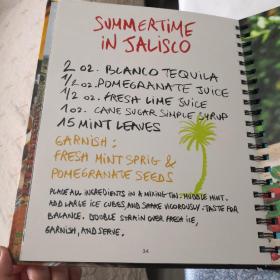 SUMMERTIME
IN JALISCO
2 OZ. BLANCO TEQUILA
1/2 OZ. POMEGRANATE JUICE
1/2 OZ. FRESH LIME JUICE
1 OZ. CANE SUGAR SIMPLE SYRUP
15 MINT LEAVES
GARNISH:
FRESH MINT SPRIG &
POMEGRANATE SEEDS
PLACE ALL INGREDIENTS IN A MIXING TIN. MUDDLE MINT.
ADD LARGE ICE CUBES, AND SHAKE VIGOROUSLY. TASTE FOR
BALANCE. DOUBLE STRAIN OVER FRESH ICE,
GARNISH, AND SERVE.
34